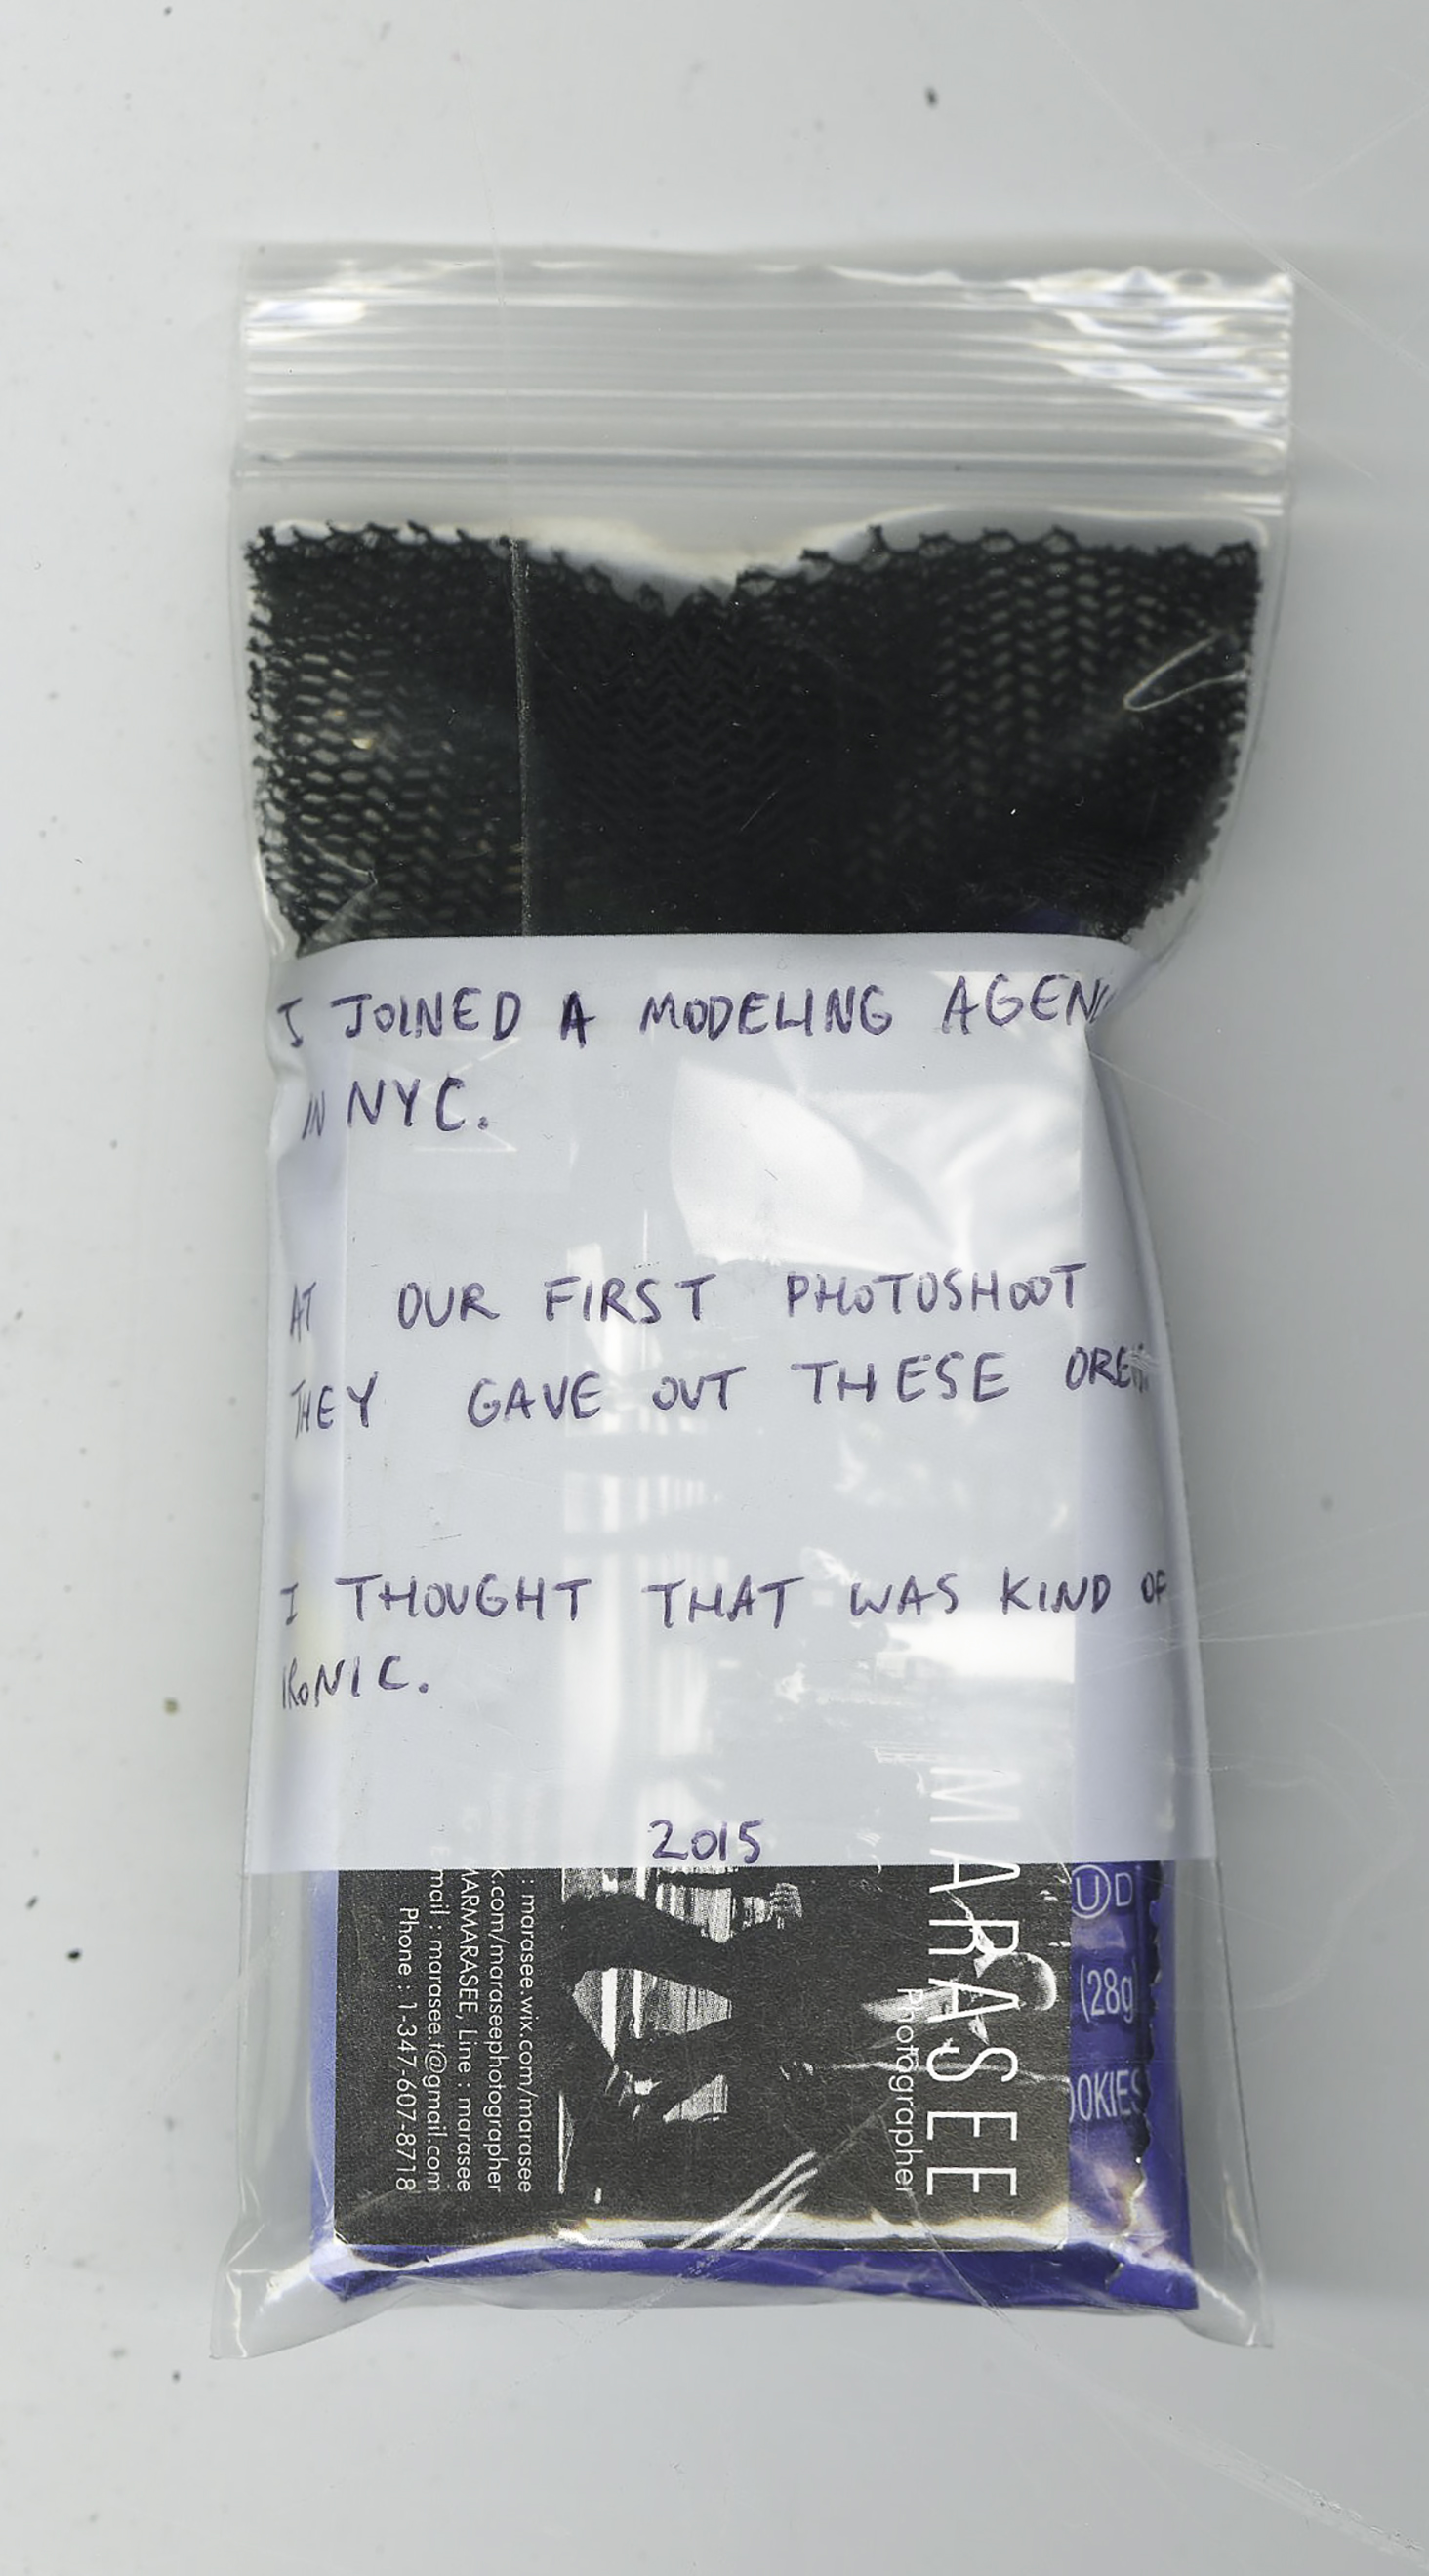 I JOINED A MODELING AGENC
IN NYC.
AT OUR FIRST PHOTOSHOOT
THEY GAVE OUT THESE OREO
I THOUGHT THAT WAS KIND OF
IRONIC.
2015
MARASEE
Photographer
: marasee.wix.com/marasee
k.com/maraseephotographer
MARMARASEE, Line : marasee
Email : marasee.t@gmail.com
Phone : 1-347-607-8718
UD
(28g
OOKIES